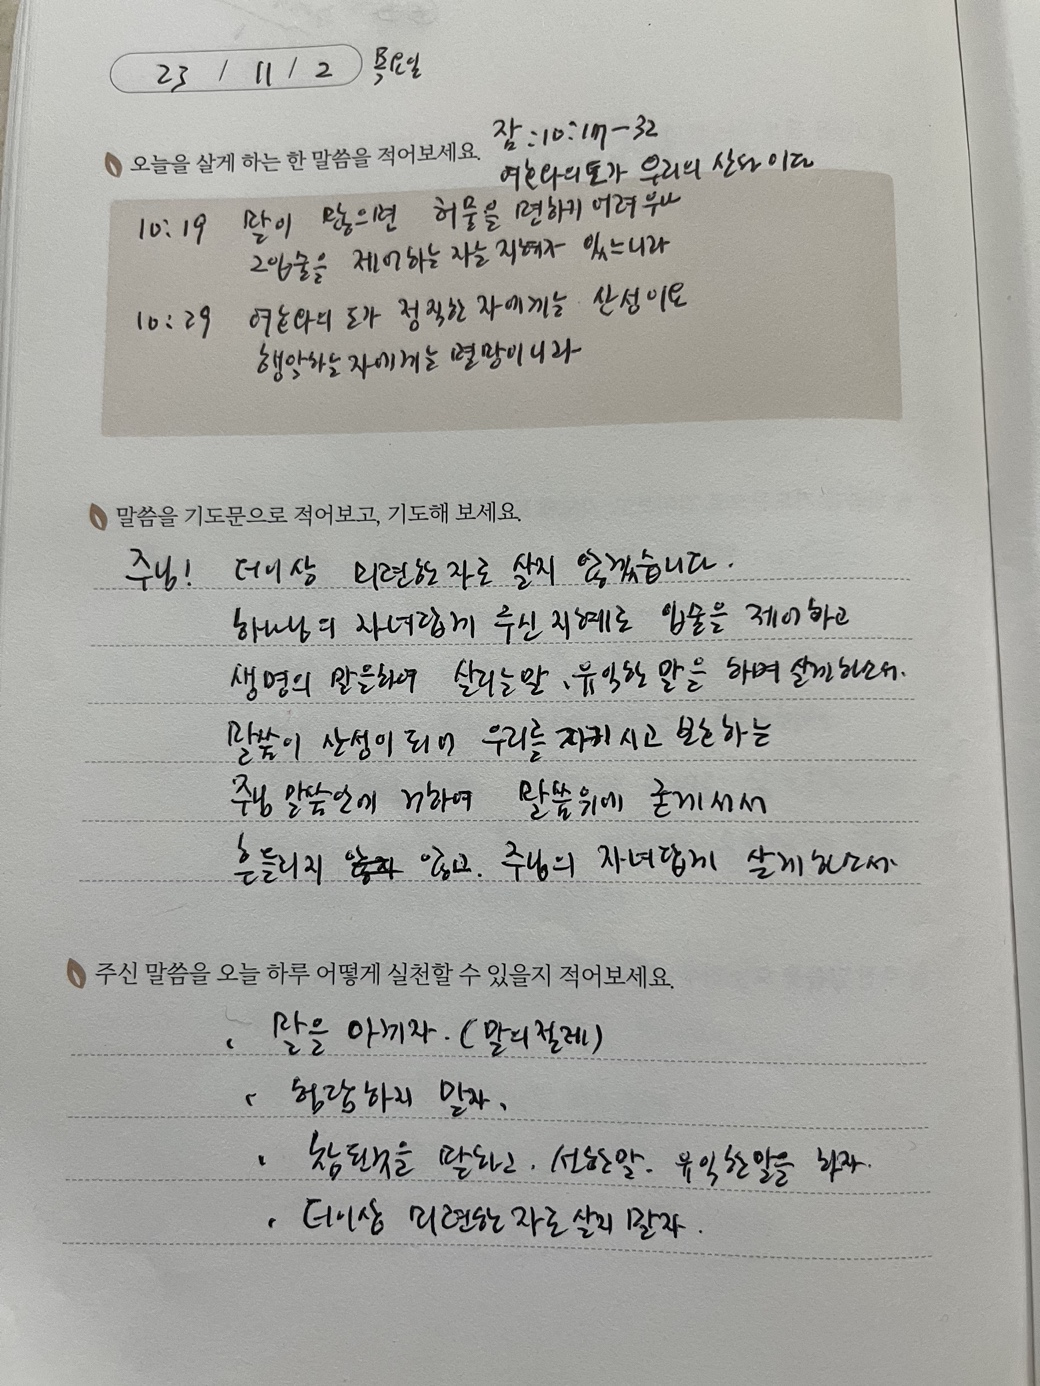 23 / 11 / 2 목요일
잠:10:17-32
오늘을 살게 하는 한 말씀을 적어보세요.
여호와의 도가 우리의 산성이다
10:19 말이 많으면 허물을 면하기 어려우나
그 입술을 제어하는 자는 지혜가 있느니라
10:29 여호와의 도가 정직한 자에게는 산성이요
행악하는 자에게는 멸망이니라
말씀을 기도문으로 적어보고, 기도해 보세요.
주님! 더이상 미련한 자로 살지 않겠습니다.
하나님의 자녀답게 주신 지혜로 입술을 제어하고
생명의 말을하여 살리는말, 유익한 말을 하며 살게 하소서.
말씀이 산성이 되어 우리를 지키시고 보호하는
주님 말씀안에 거하여 말씀위에 굳게서서
흔들리지 않고. 주님의 자녀답게 살게 하소서.
주신 말씀을 오늘 하루 어떻게 실천할 수 있을지 적어보세요.
. 말을 아끼자. (말의절제)
. 험담하지 말자.
. 참된것을 말하고. 선한말. 유익한말을 하자.
. 더이상 미련한 자로 살지 말자.